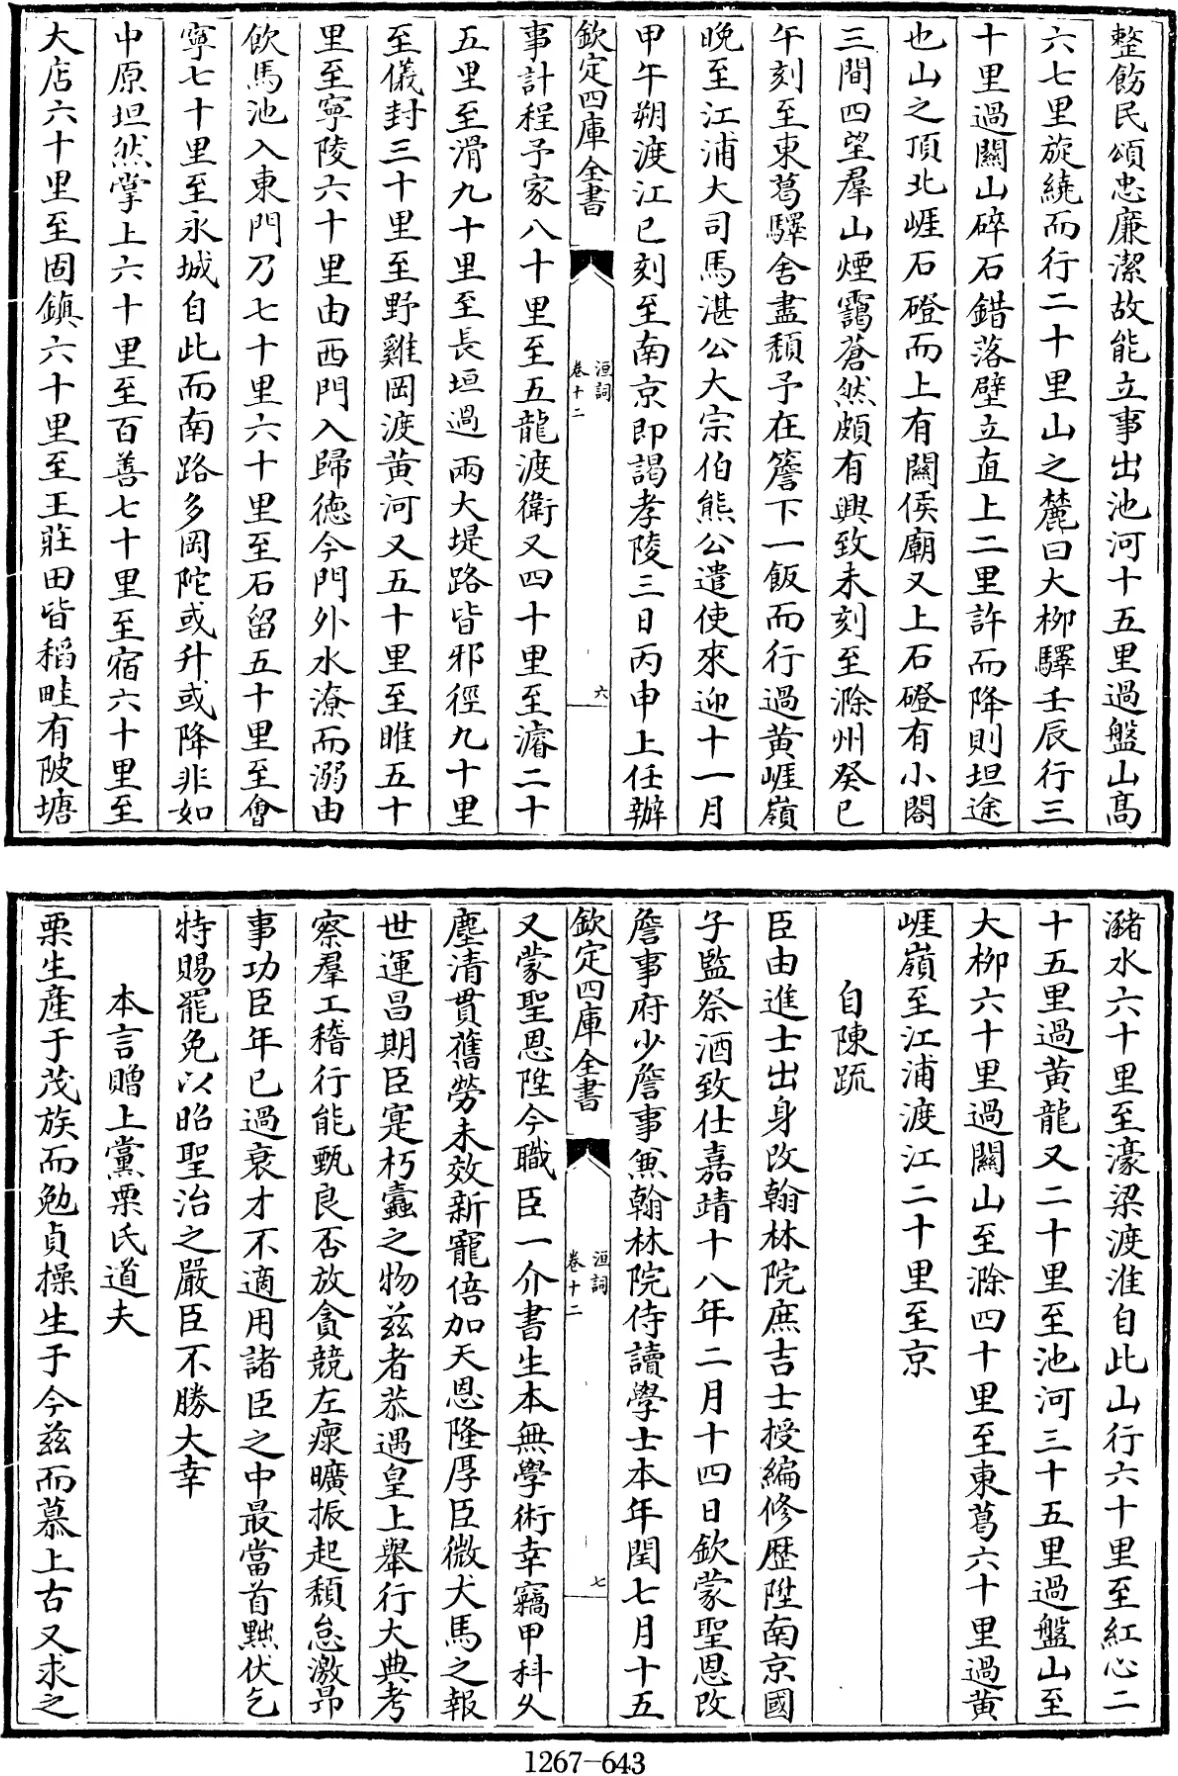 整飭民頌忠廉潔故能立事出池河十五里過盤山高
六七里旋繞而行二十里山之麓曰大柳驛壬辰行三
十里過關山碎石錯落壁立直上二里許而降則坦途
也山之頂北崕石磴而上有關侯廟又上石磴有小閣
三間四望羣山煙靄蒼然頗有興致未刻至滁州癸巳
午刻至東葛驛舍盡頽予在簷下一飯而行過黄崕嶺
晚至江浦大司馬湛公大宗伯熊公遣使來迎十一月
甲午朔渡江巳刻至南京即謁孝陵三日丙申上任辦
欽定四庫全書
洹詞
卷十二
六
事計程予家八十里至五龍渡衛又四十里至濬二十
五里至滑九十里至長垣過兩大堤路皆邪徑九十里
至儀封三十里至野雞岡渡黄河又五十里至睢五十
里至寧陵六十里由西門入歸徳今門外水潦而溺由
飲馬池入東門乃七十里六十里至石留五十里至㑹
寧七十里至永城自此而南路多岡陀或升或降非如
中原坦然掌上六十里至百善七十里至宿六十里至
大店六十里至固鎮六十里至王莊田皆稻畦有陂塘
瀦水六十里至濠梁渡淮自此山行六十里至紅心二
十五里過黄龍又二十里至池河三十五里過盤山至
大柳六十里過關山至滁四十里至東葛六十里過黄
崕嶺至江浦渡江二十里至京
自陳疏
臣由進士出身改翰林院庶吉士授編修歴陞南京國
子監祭酒致仕嘉靖十八年二月十四日欽蒙聖恩改
詹事府少詹事兼翰林院侍讀學士本年閏七月十五
欽定四庫全書
洹詞
卷十二
七
又蒙聖恩陞今職臣一介書生本無學術幸竊甲科久
塵清貫舊勞未效新寵倍加天恩隆厚臣微犬馬之報
世運昌期臣寔朽蠧之物兹者恭遇皇上舉行大典考
察羣工稽行能甄良否放貪競左瘝曠振起頽怠激昂
事功臣年已過衰才不適用諸臣之中最當首黜伏乞
特賜罷免以昭聖治之嚴臣不勝大幸
本言贈上黨栗氏道夫
栗生産于茂族而勉貞操生于今兹而慕上古又求之
1267-643